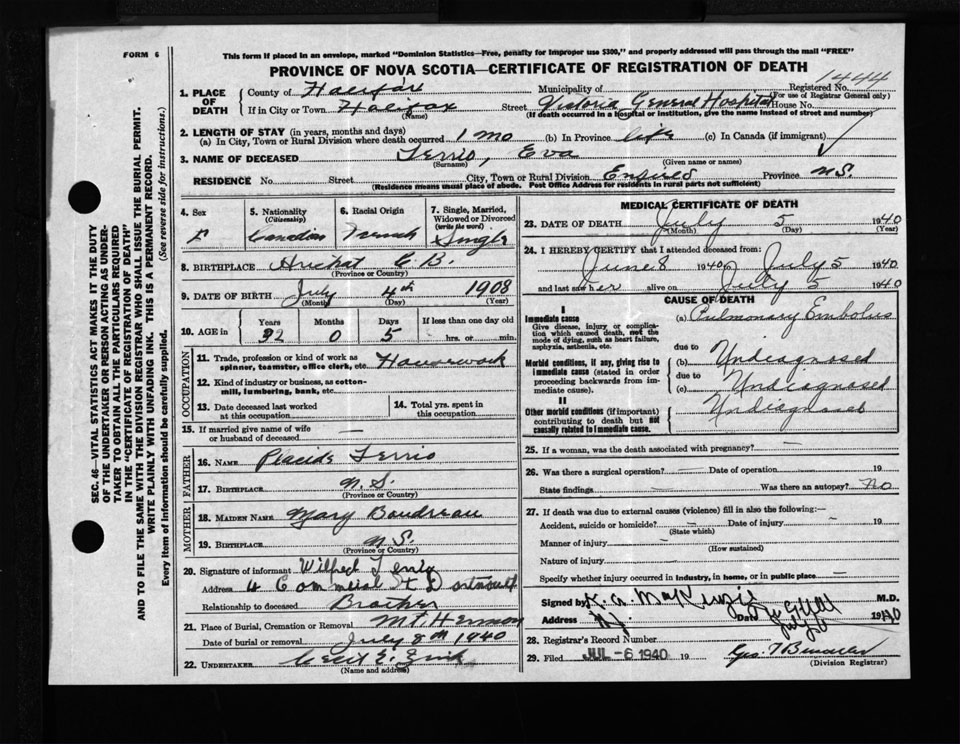 FORM 6
This form if placed in an envelope, marked "Dominion Statistics—Free, penalty for improper use $300," and properly addressed will pass through the mail "FREE"
PROVINCE OF NOVA SCOTIA—CERTIFICATE OF REGISTRATION OF DEATH
1444
Registered No.
(For use of Registrar General only)
1. PLACE OF DEATH
County of Halifax Municipality of
If in City or Town Halifax Street Victoria General Hospital House No.
(Name) (If death occurred in a hospital or institution, give the name instead of street and number)
2. LENGTH OF STAY (in years, months and days)
(a) In City, Town or Rural Division where death occurred 1 mo (b) In Province life (c) In Canada (if immigrant)
3. NAME OF DECEASED Terrio, Eva
(Surname) (Given name or names)
RESIDENCE No. Street City, Town or Rural Division Province N.S.
(Residence means usual place of abode. Post Office Address for residents in rural parts not sufficient)
4. Sex 5. Nationality (Citizenship) 6. Racial Origin 7. Single, Married, Widowed or Divorced (write the word)
F Canadian French Single
8. BIRTHPLACE Arichat C.B.
(Province or Country)
9. DATE OF BIRTH July 4th 1908
(Month) (Day) (Year)
10. AGE in Years Months Days If less than one day old
32 0 5 hrs. or min.
OCCUPATION
11. Trade, profession or kind of work as spinner, teamster, office clerk, etc. Housework
12. Kind of industry or business, as cotton-mill, lumbering, bank, etc.
13. Date deceased last worked at this occupation
14. Total yrs. spent in this occupation
15. If married give name of wife or husband of deceased —
FATHER
16. NAME Placide Terrio
17. BIRTHPLACE N.S.
(Province or Country)
MOTHER
18. MAIDEN NAME Mary Boudreau
19. BIRTHPLACE N.S.
(Province or Country)
20. Signature of informant Wilfred Terrio
Address 4 Commercial St Dartmouth
Relationship to deceased Brother
21. Place of Burial, Cremation or Removal Mt. Hermon
Date of burial or removal July 8th 1940
22. UNDERTAKER
(Name and address)
MEDICAL CERTIFICATE OF DEATH
23. DATE OF DEATH July 5 1940
(Month) (Day) (Year)
24. I HEREBY CERTIFY that I attended deceased from:
June 8 1940 July 5 1940
and last saw her alive on July 5 1940
CAUSE OF DEATH
I
Immediate cause
Give disease, injury or complication which caused death, not the mode of dying, such as heart failure, asphyxia, asthenia, etc.
(a) Pulmonary Embolus
due to
Morbid conditions, if any, giving rise to immediate cause (stated in order proceeding backwards from immediate cause).
(b) Undiagnosed
due to
(c) Undiagnosed
II
Other morbid conditions (if important) contributing to death but not causally related to immediate cause.
Undiagnosed
25. If a woman, was the death associated with pregnancy? —
26. Was there a surgical operation? — Date of operation — 19
State findings — Was there an autopsy? No
27. If death was due to external causes (violence) fill in also the following:—
Accident, suicide or homicide? — Date of injury — 19
(State which)
Manner of injury —
(How sustained)
Nature of injury
Specify whether injury occurred in industry, in home, or in public place —
Signed by K. A. MacKenzie M.D.
Address Date 1940
28. Registrar's Record Number
29. Filed JUL -6 1940 19
(Division Registrar)
SEC. 46—VITAL STATISTICS ACT MAKES IT THE DUTY
OF THE UNDERTAKER OR PERSON ACTING AS UNDER-
TAKER TO OBTAIN ALL THE PARTICULARS REQUIRED
IN THE "CERTIFICATE OF REGISTRATION OF DEATH"
AND TO FILE THE SAME WITH THE DIVISION REGISTRAR WHO SHALL ISSUE THE BURIAL PERMIT.
WRITE PLAINLY WITH UNFADING INK. THIS IS A PERMANENT RECORD.
Every item of information should be carefully supplied. (See reverse side for instructions.)